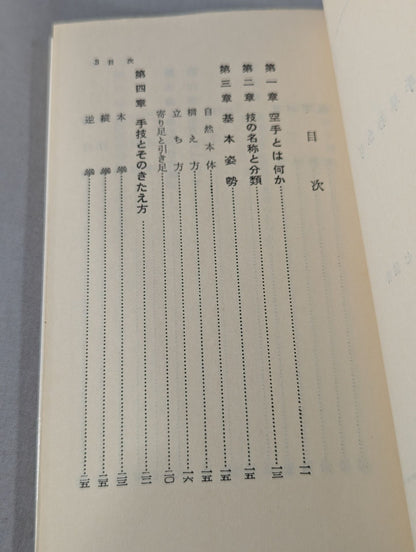 3 目次
目次
第一章 空手とは何か……一一
第二章 技の名称と分類……一三
第三章 基本姿勢……一五
自然本体……一五
構え方……一五
立ち方……一六
寄り足と引き足……二〇
第四章 手技とそのきたえ方……二二
本拳……二三
縦拳……二五
逆拳……二五